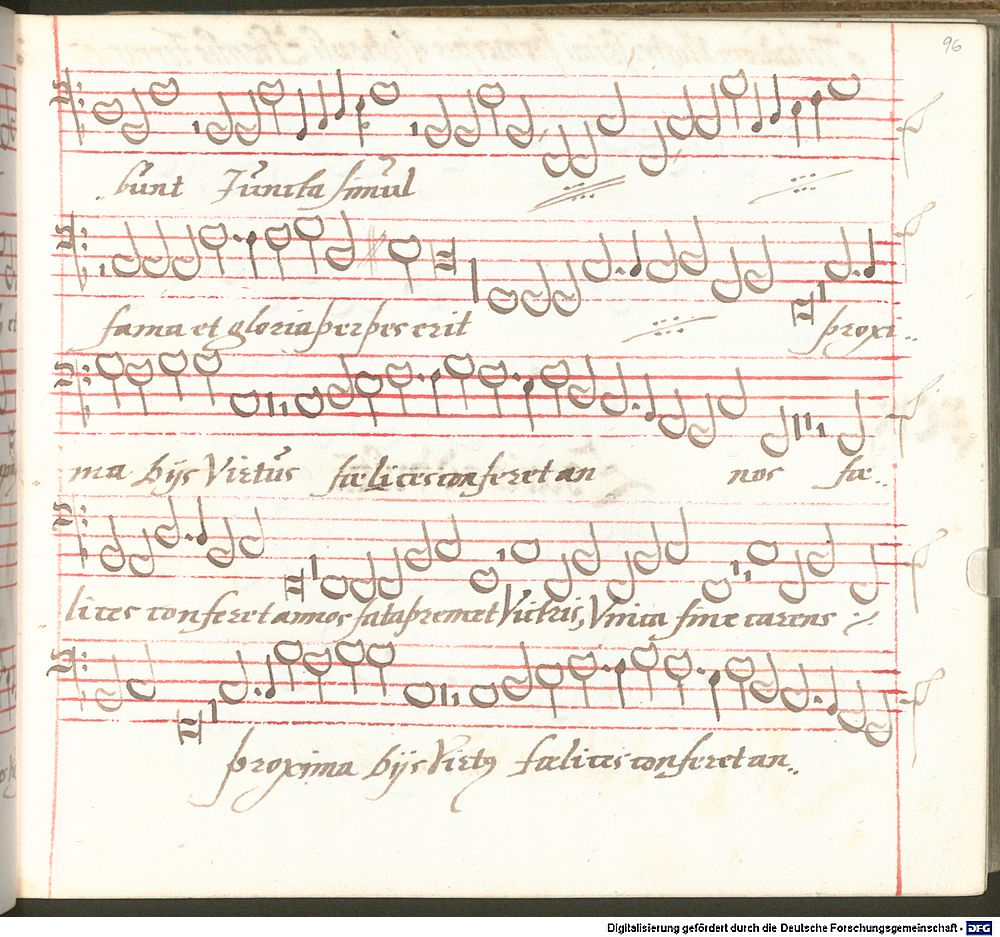 96
bunt Juncta simul
fama et gloria perpes erit
proxi..
ma hijs Virtus fœlices conferet an nos fœ..
lices conferet annos fata premet Victris, Vnica fine carens
proxima hijs Virtꝰ fœlices conferet an..
Digitalisierung gefördert durch die Deutsche Forschungsgemeinschaft - DFG